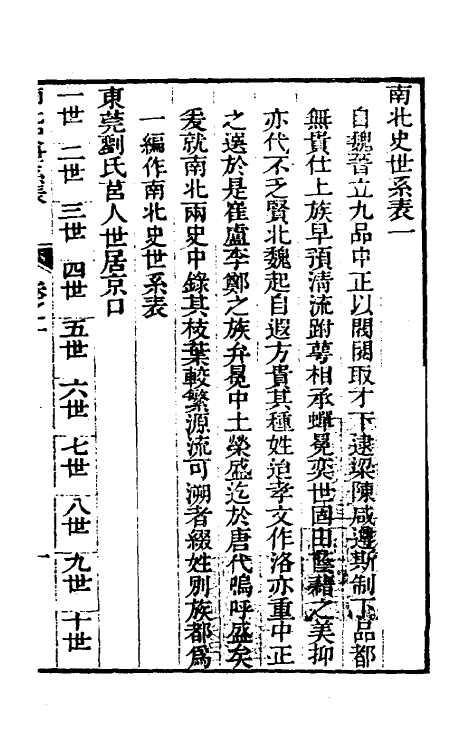 南北史世系表一
自魏晉立九品中正以閥閱取才下逮梁陳咸遵斯制下品都
無貲仕上族早預清流跗萼相承蟬冕奕世固由蔭藉之美抑
亦代不乏賢北魏起自遐方貴其種姓迨孝文作洛亦重中正
之選於是崔盧李鄭之族弁冕中土榮盛迄於唐代嗚呼盛矣
爰就南北兩史中錄其枝葉較繁源流可溯者綴姓別族都爲
一編作南北史世系表
東莞劉氏莒人世居京口
一世 二世 三世 四世 五世 六世 七世 八世 九世 十世
卷之一 一